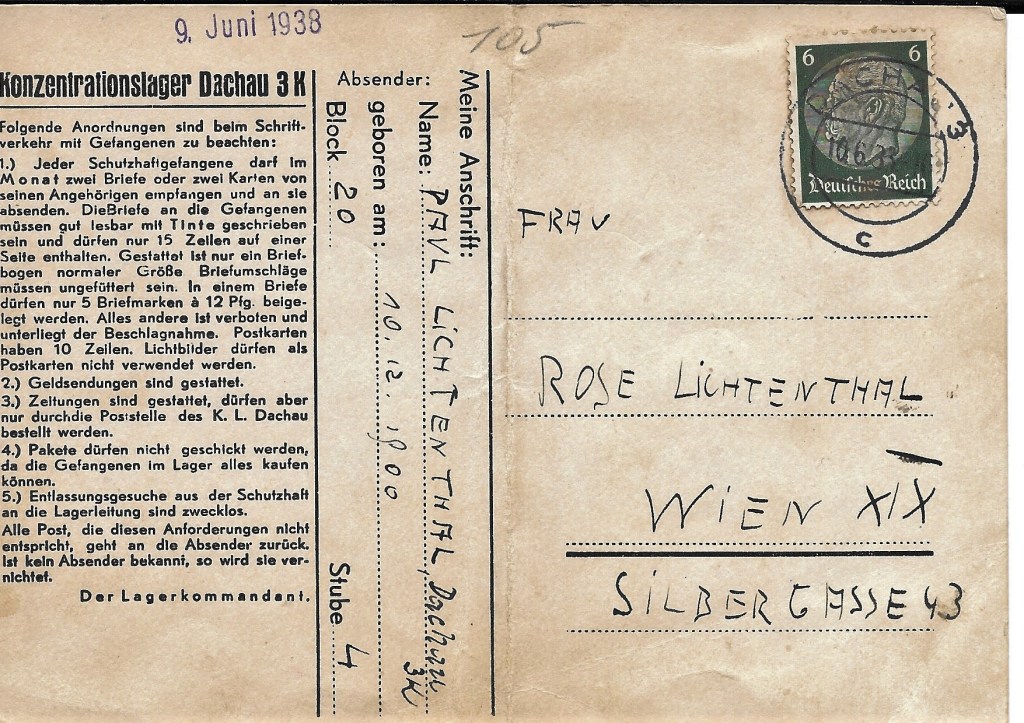 9. Juni 1938
105
Konzentrationslager Dachau 3 K
Folgende Anordnungen sind beim Schrift-
verkehr mit Gefangenen zu beachten:
1.) Jeder Schutzhaftgefangene darf im
Monat zwei Briefe oder zwei Karten von
seinen Angehörigen empfangen und an sie
absenden. DieBriefe an die Gefangenen
müssen gut lesbar mit Tinte geschrieben
sein und dürfen nur 15 Zeilen auf einer
Seite enthalten. Gestattet ist nur ein Brief-
bogen normaler Größe Briefumschläge
müssen ungefüttert sein. In einem Briefe
dürfen nur 5 Briefmarken à 12 Pfg. beige-
legt werden. Alles andere ist verboten und
unterliegt der Beschlagnahme. Postkarten
haben 10 Zeilen. Lichtbilder dürfen als
Postkarten nicht verwendet werden.
2.) Geldsendungen sind gestattet.
3.) Zeitungen sind gestattet, dürfen aber
nur durchdie Poststelle des K. L. Dachau
bestellt werden.
4.) Pakete dürfen nicht geschickt werden,
da die Gefangenen im Lager alles kaufen
können.
5.) Entlassungsgesuche aus der Schutzhaft
an die Lagerleitung sind zwecklos.
Alle Post, die diesen Anforderungen nicht
entspricht, geht an die Absender zurück.
Ist kein Absender bekannt, so wird sie ver-
nichtet.
Der Lagerkommandant.
Absender:
Meine Anschrift:
Name: PAUL LICHTENTHAL, Dachau
3K
geboren am: 10. 12. 1900
Block 20 Stube 4
6 6
Deutsches Reich
10.6.38
C
FRAU
ROSE LICHTENTHAL
WIEN XIX
SILBERGASSE 43